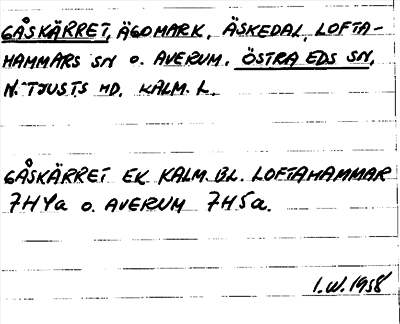 GÅSKÄRRET, ÄGOMARK, ÄSKEDAL, LOFTA-
HAMMARS SN O. AVERUM, ÖSTRA EDS SN,
N. TJUSTS HD, KALM. L.
GÅSKÄRRET EK KALM. BL. LOFTAHAMMAR
7H4a O. AVERUM 7H5a.
I.W. 1958